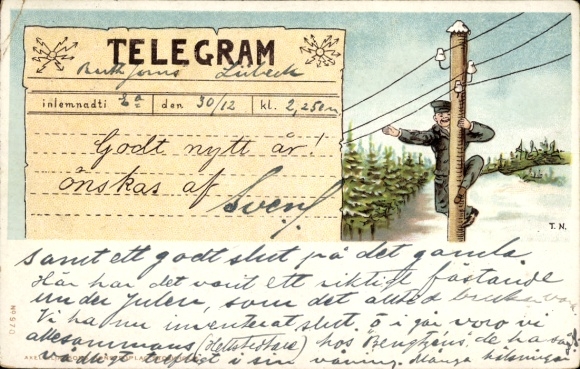 TELEGRAM
Lübeck
inlemnadti Ea den 30/12 kl. 2,25 em
Godt nytt år!
önskas af
Sven
T. N.
samt ett godt slut på det gamla.
Här har det varit ett riktigt fästande
under Julen, som det alltid brukar
Vi ha nu inventerat slut, o i går voro vi
allesammans hos de ha så
i sin våning. Många helsningar
No 570